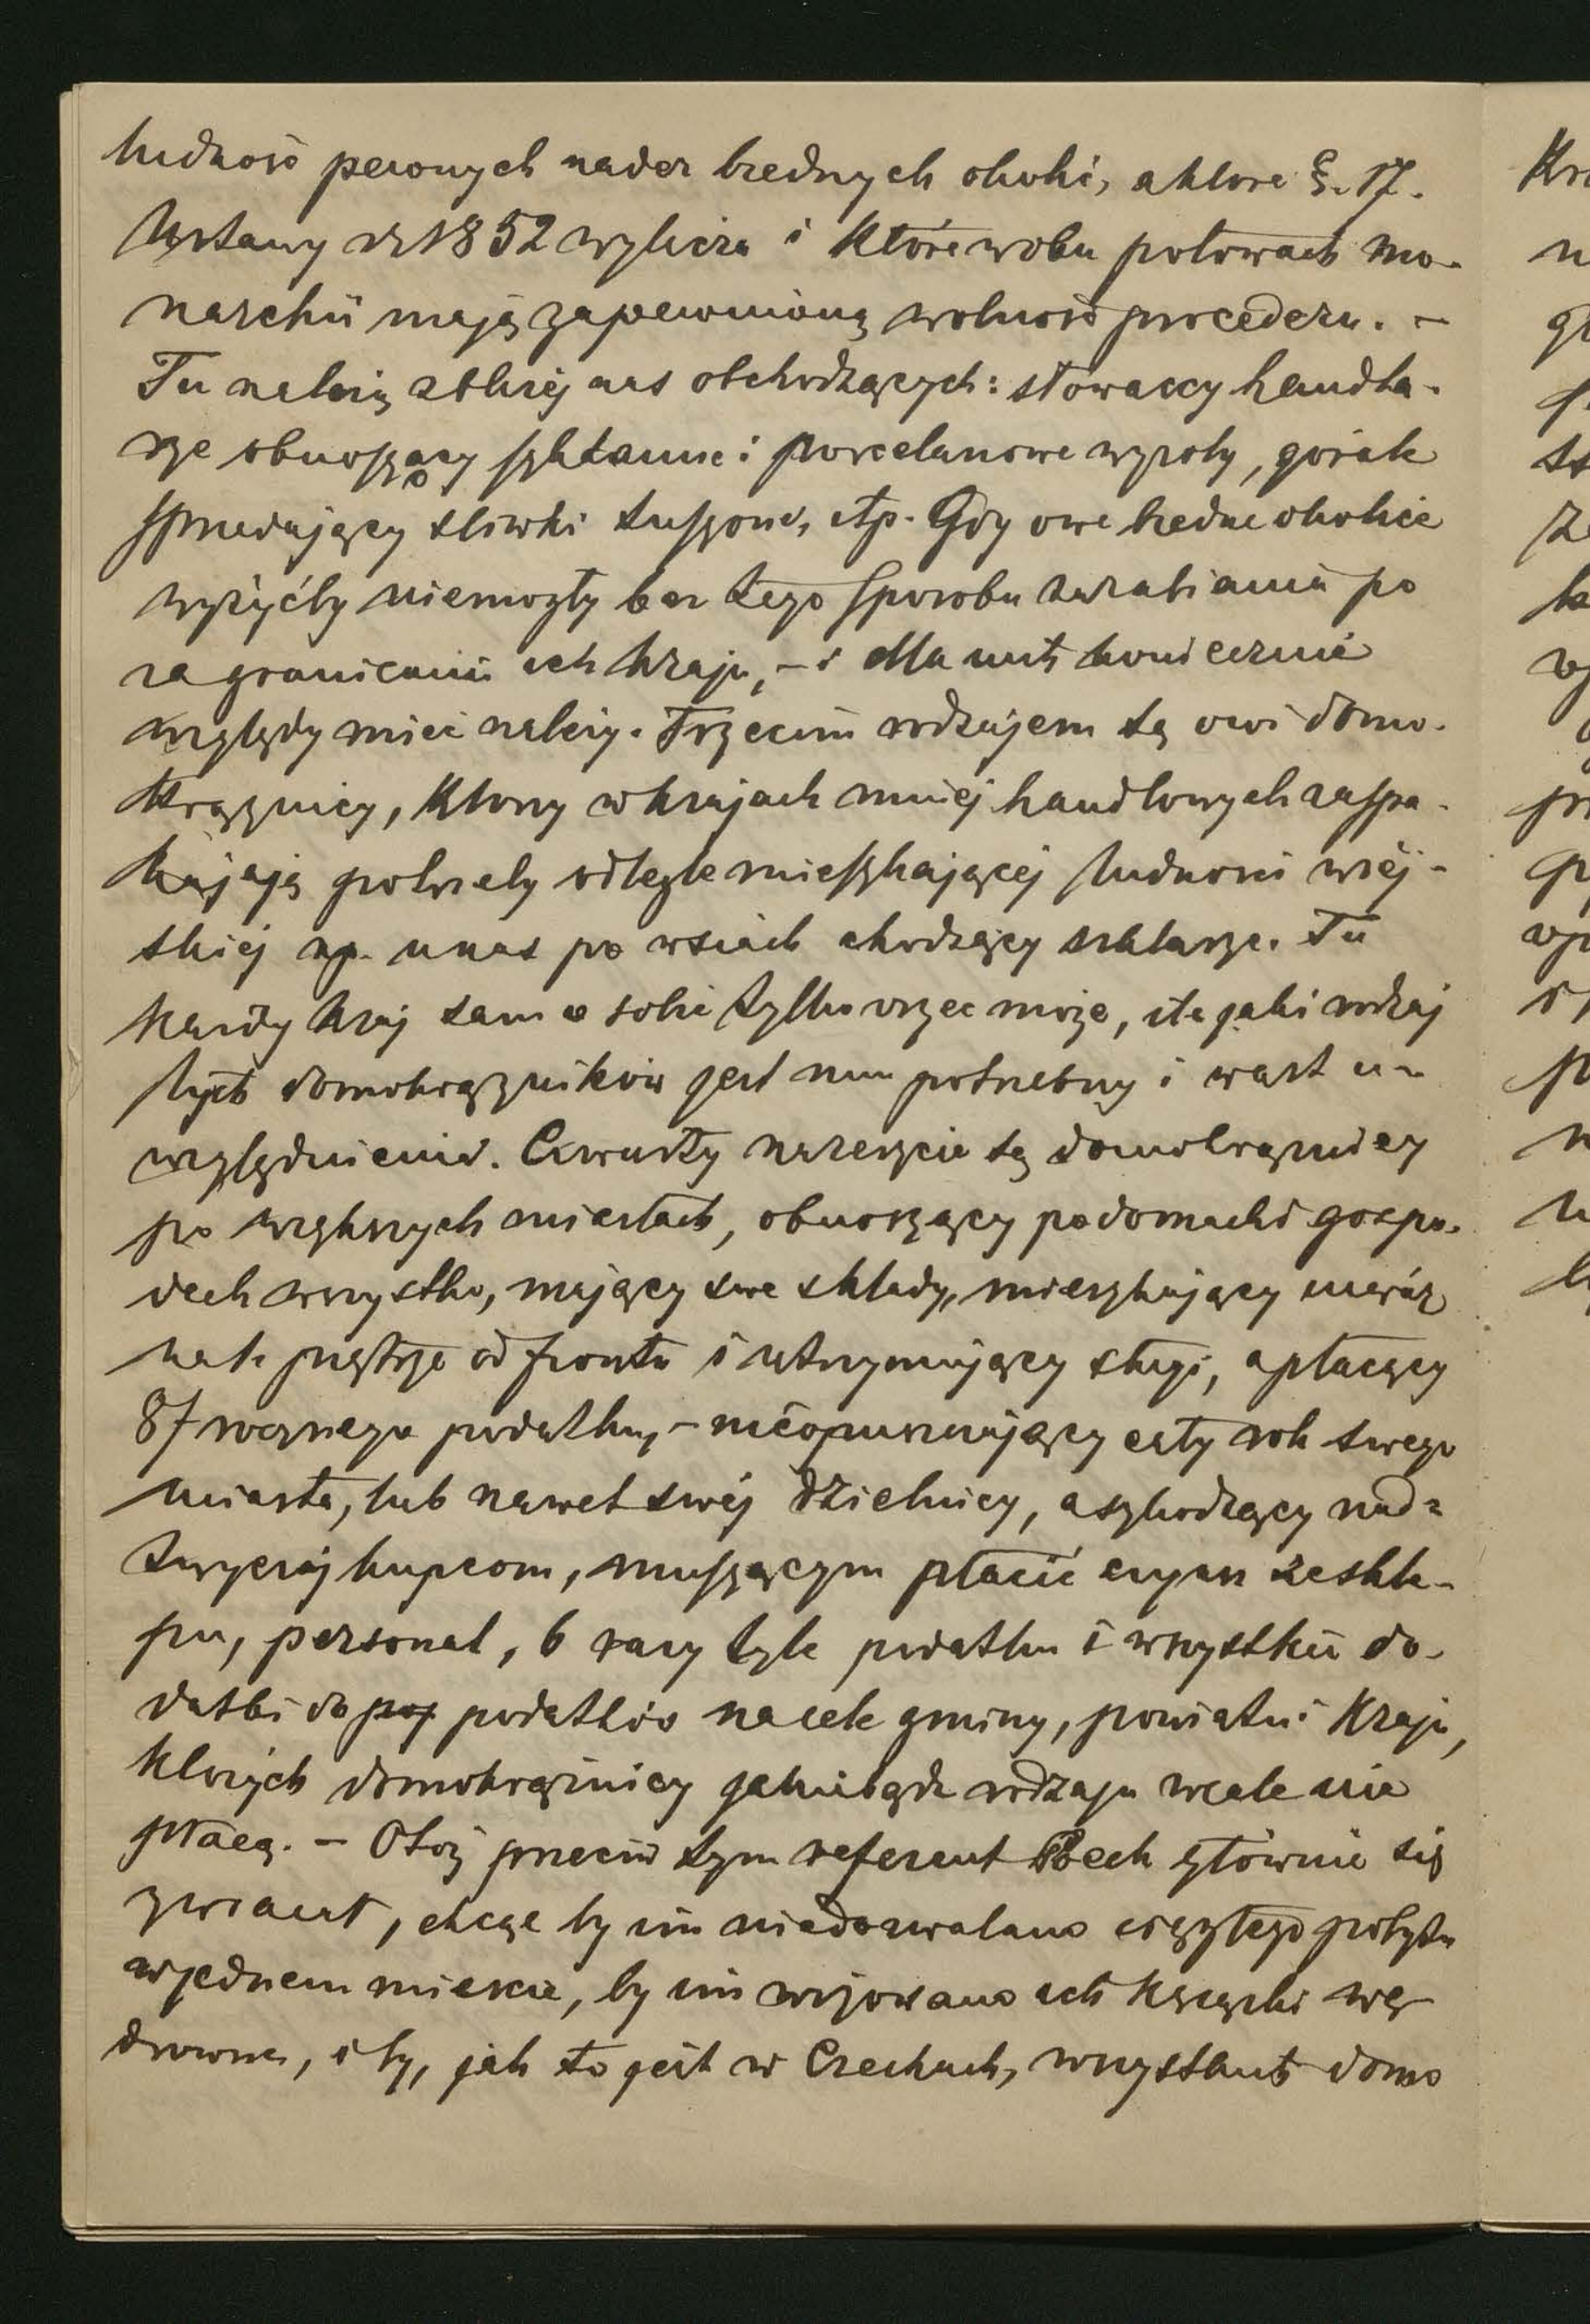 ludność pewnych nader biednych okolic, a które §. 17.
Ustawy z r 1852 wylicza i które w obu połowach mo-
narchii mają zapewnioną wolność procederu. –
Tu należą z bliżej nas obchodzących: słowaccy handla-
rze obnoszący szklanne i porcelanowe wyroby, górale
sprzedający śliwki suszone, itp. Gdy owe biedne okolice
wyżyćby niemogły bez tego sposobu zarabiania po
za granicami ich kraju, – i dla nich koniecznie
względy mieć należy. Trzecim rodzajem są owi domo-
krążnicy, którzy w krajach mniej handlowych zaspa-
kajają potrzeby odlegle mieszkającej ludności wiej-
skiej np. u nas po wsiach chodzący szklarze. Tu
każdy kraj sam o sobie tylko orzec może, ile jaki rodzaj
tych domokrążników jest mu potrzebny i wart u-
względnienia. Czwarty nareszcie są domokrążnicy
po większych miastach, obnoszący po domach i gospo-
dach wszystko, mający swe składy, mieszkający nieraz
na 1. piętrze od frontu i utrzymujący sługi, a płacący
8 f rocznego podatku, – nieopuszczający cały rok swego
miasta, lub nawet swej dzielnicy, a szkodzący nad-
zwyczaj kupcom, muszącym płacić czynsz ze skle-
pu, personal, 6 razy tyle podatku i wszystkie do-
datki do pod podatków na cele gminy, powiatu i Kraju,
których domokrążnicy jakiegobądź rodzaju wcale nie
płacą. – Otóż przeciw tym referent Pech głównie się
zwracał, chcąc by im niedozwalano ciągłego pobytu
w jednem mieście, by im wizowano ich książki wę-
drowne, i by, jak to jest w Czechach, wszystkich domo